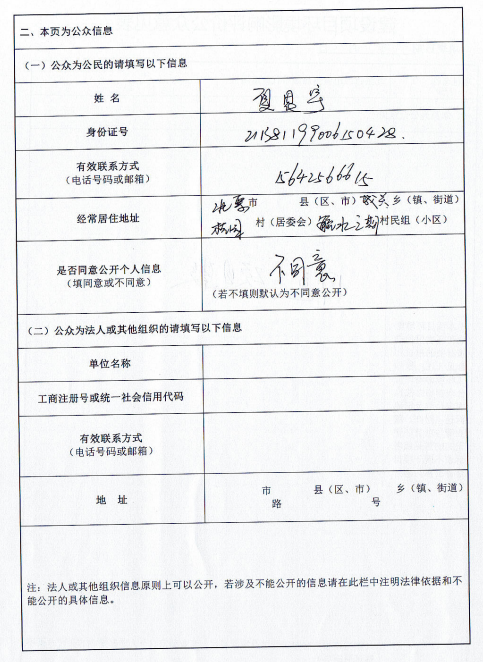 二、本页为公众信息
（一）公众为公民的请填写以下信息
姓 名
身份证号 211381199006150428.
有效联系方式
（电话号码或邮箱） 15642566615
北票市 县（区、市） 乡（镇、街道）
经常居住地址
村（居委会） 村民组（小区）
是否同意公开个人信息 不同意
（填同意或不同意）
（若不填则默认为不同意公开）
（二）公众为法人或其他组织的请填写以下信息
单位名称
工商注册号或统一社会信用代码
有效联系方式
（电话号码或邮箱）
地 址
市 县（区、市） 乡（镇、街道）
路 号
注：法人或其他组织信息原则上可以公开，若涉及不能公开的信息请在此栏中注明法律依据和不
能公开的具体信息。